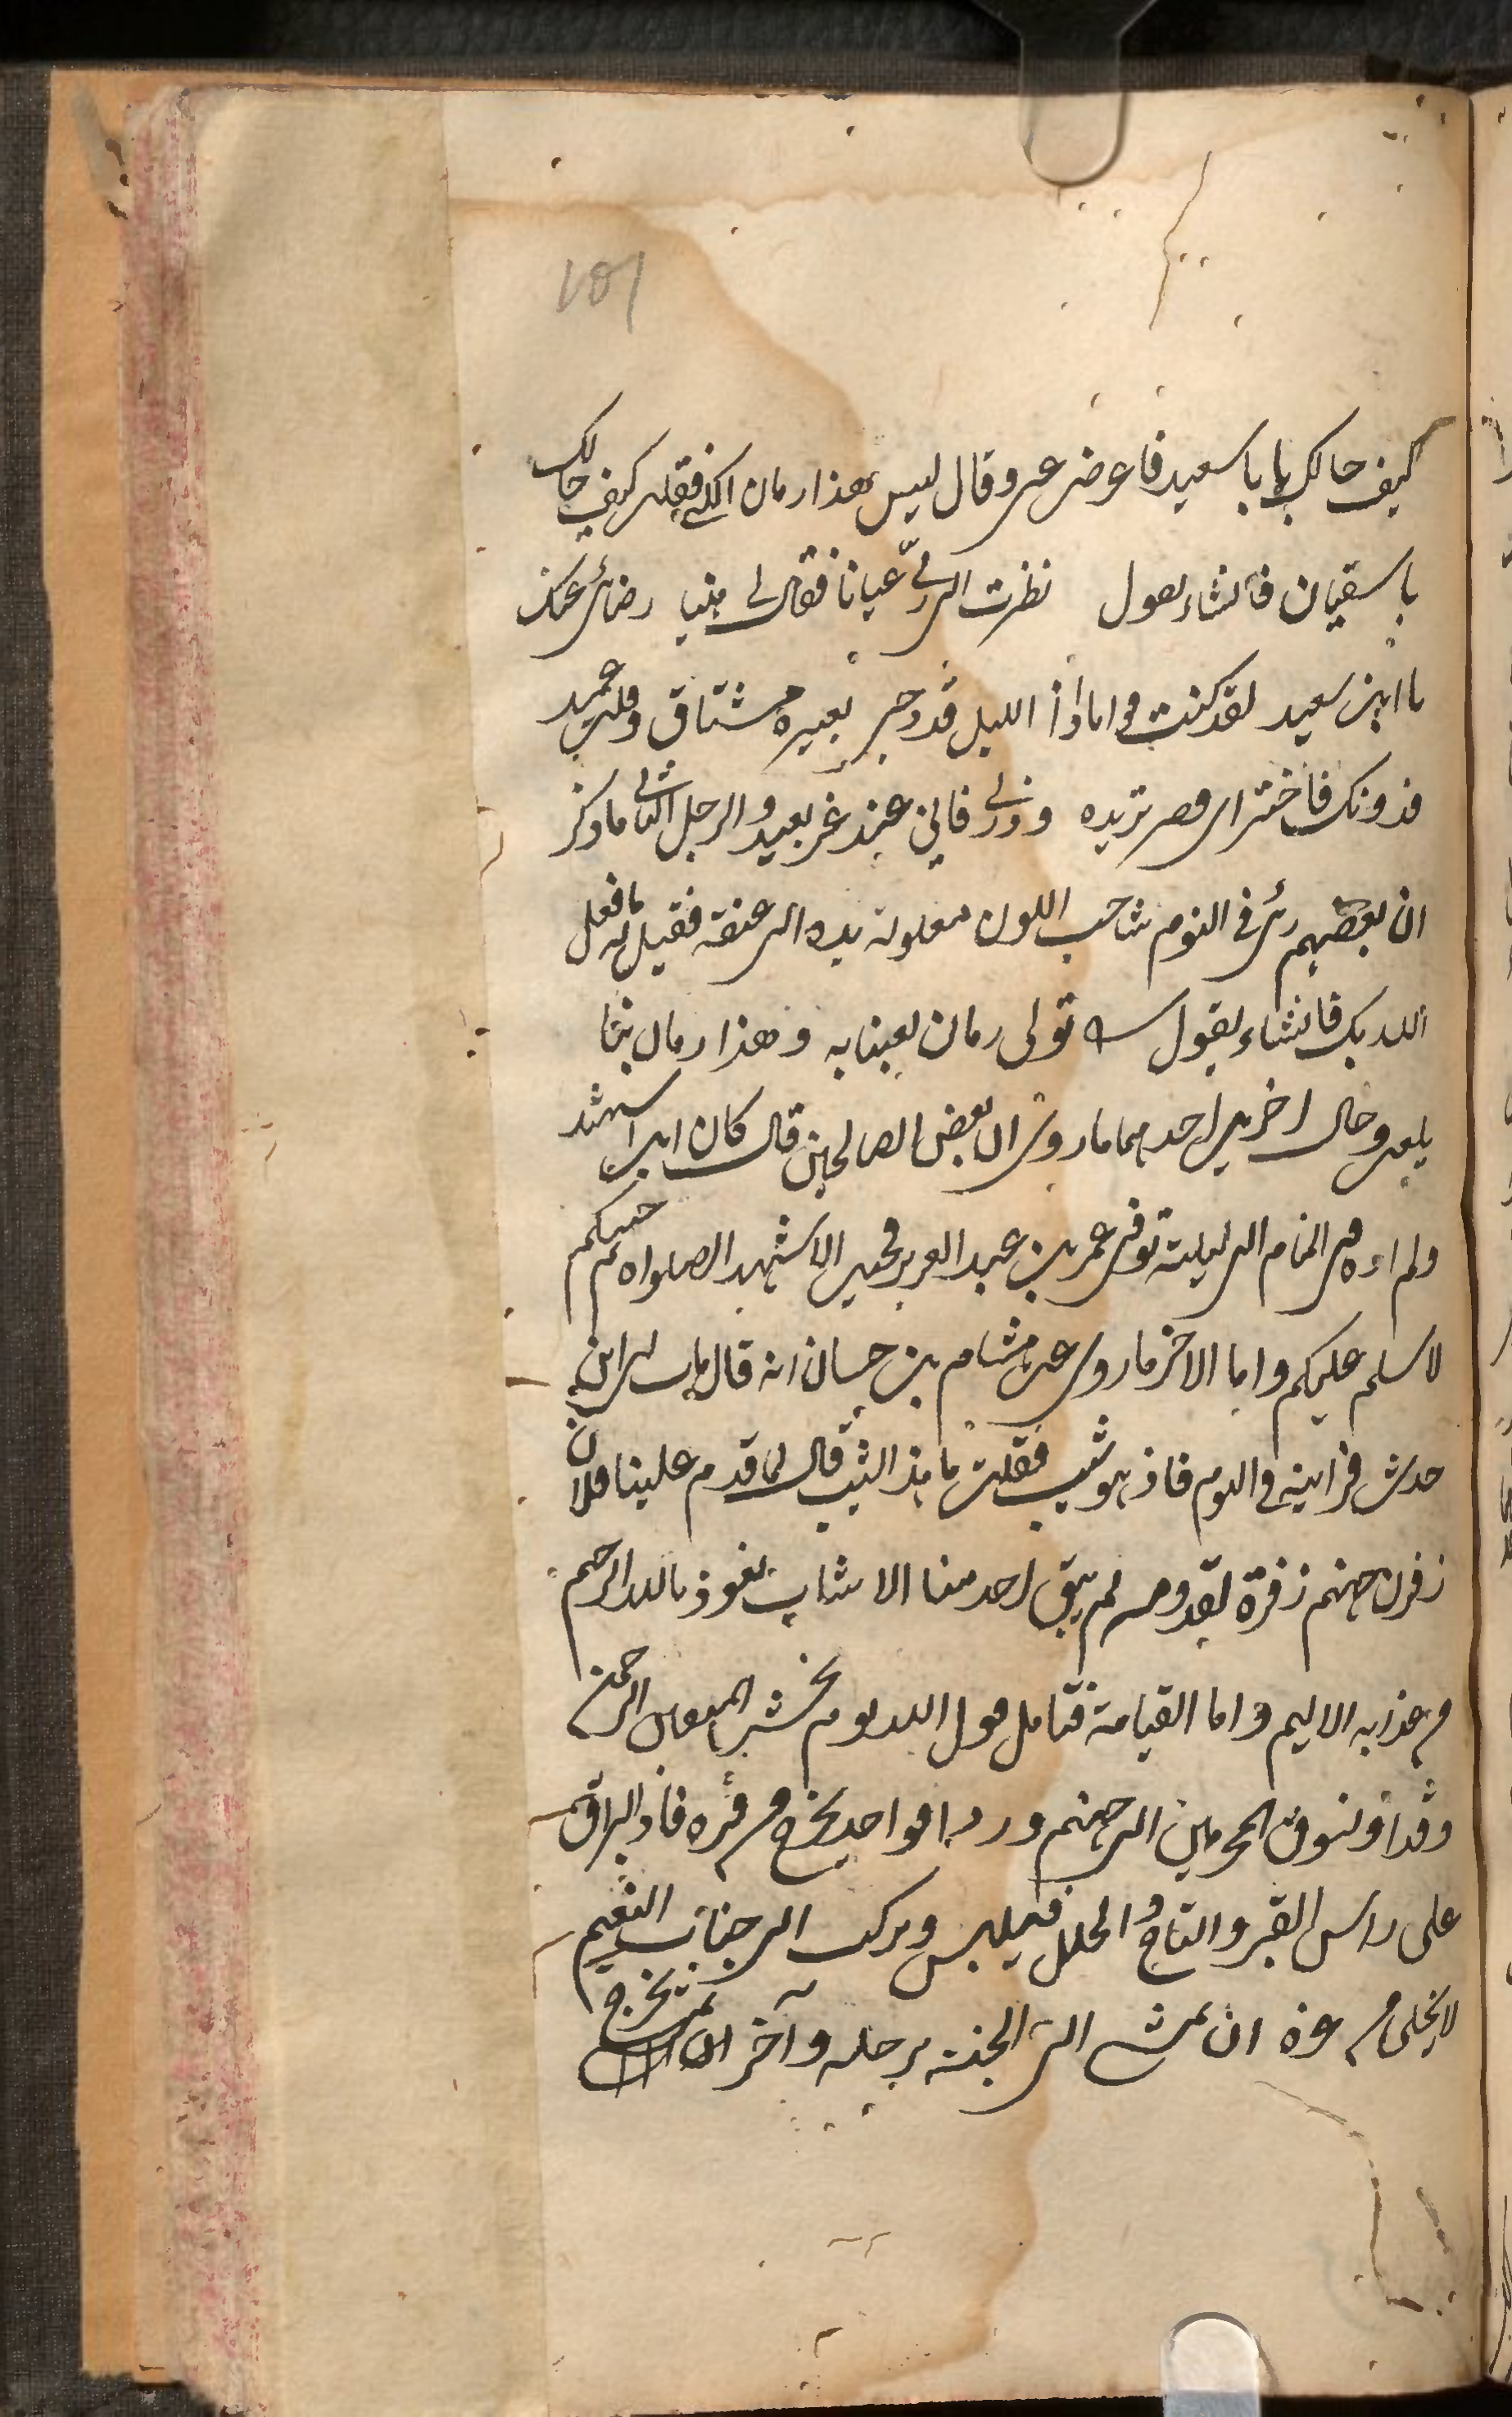 101
كيف حالك يا با سعيد فاعرض عنى وقال ليس هذا زمان الكنى فقلت كيف حالك
يا سفيان فانشاء يقول نظرت الى ربى عيانا فقال لى هنيا رضائى عنك
يا ابن سعيد لقد كنت قواما اذا الليل قد دجى بعبرة مشتاق وقلب عميد
فدونك فاختر اى قصر تريده وزرنى فانى عنك غير بعيد والرجل الثانى ما ذكر
ان بعضهم رئى فى النوم شاحب اللون مغلولة يده الى عنقه فقيل له ما فعل
الله بك فانشاء يقول تولى زمان لعبنا به وهذا زمان بنا
يلعب وحال اخرين احدهما ما روى ان بعض الصالحين قال كان ابن استشهد
ولم اره فى المنام الى ليلة توفى عمر بن عبد العزيز
لاسلم عليكم واما الاخر ما روى عن هشام بن حسان انه قال مات لى ابن
حدث فراىته فى النوم فاذ هو شيب فقلت ما هذا الشيب قال لما قدم علينا فلان
زفرت جهنم زفرة لقدومه لم يبق احد منا الا شاب نعوذ بالله الرحيم
من عذابه الاليم واما القيامة فتامل قول الله يوم نحشر المتقين الى الرحمن
وفدا ونسوق المجرمين الى جهنم وردا فواحد يخرج من قبره فاذ البراق
على راس القبر والتاج والحلل فيلبس ويركب الى جنات النعيم
لا يخلى من عزه ان يمشى الى الجنة برجله وآخر يخرج